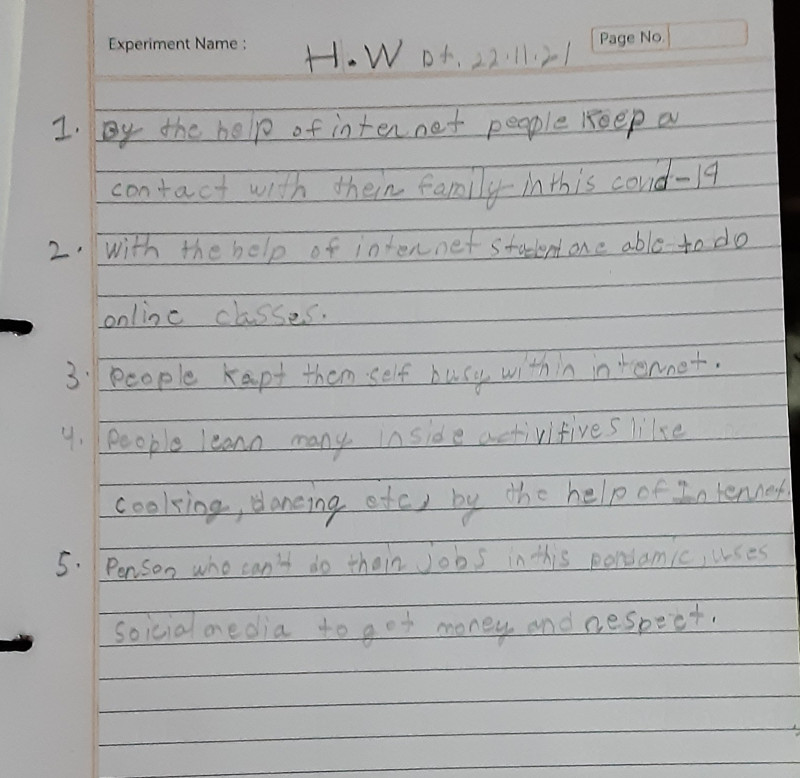 Experiment Name :
H.W Dt. 22.11.21
Page No.
1. By the help of internet people keep a
contact with their family in this covid-19
2. With the help of internet student are able to do
online classes.
3. People kapt them self busy within internet.
4. People learn many inside activitives like
cooking, dancing etc, by the help of Internet.
5. Person who can't do their jobs in this pandamic, uses
soicial media to get money and respect.